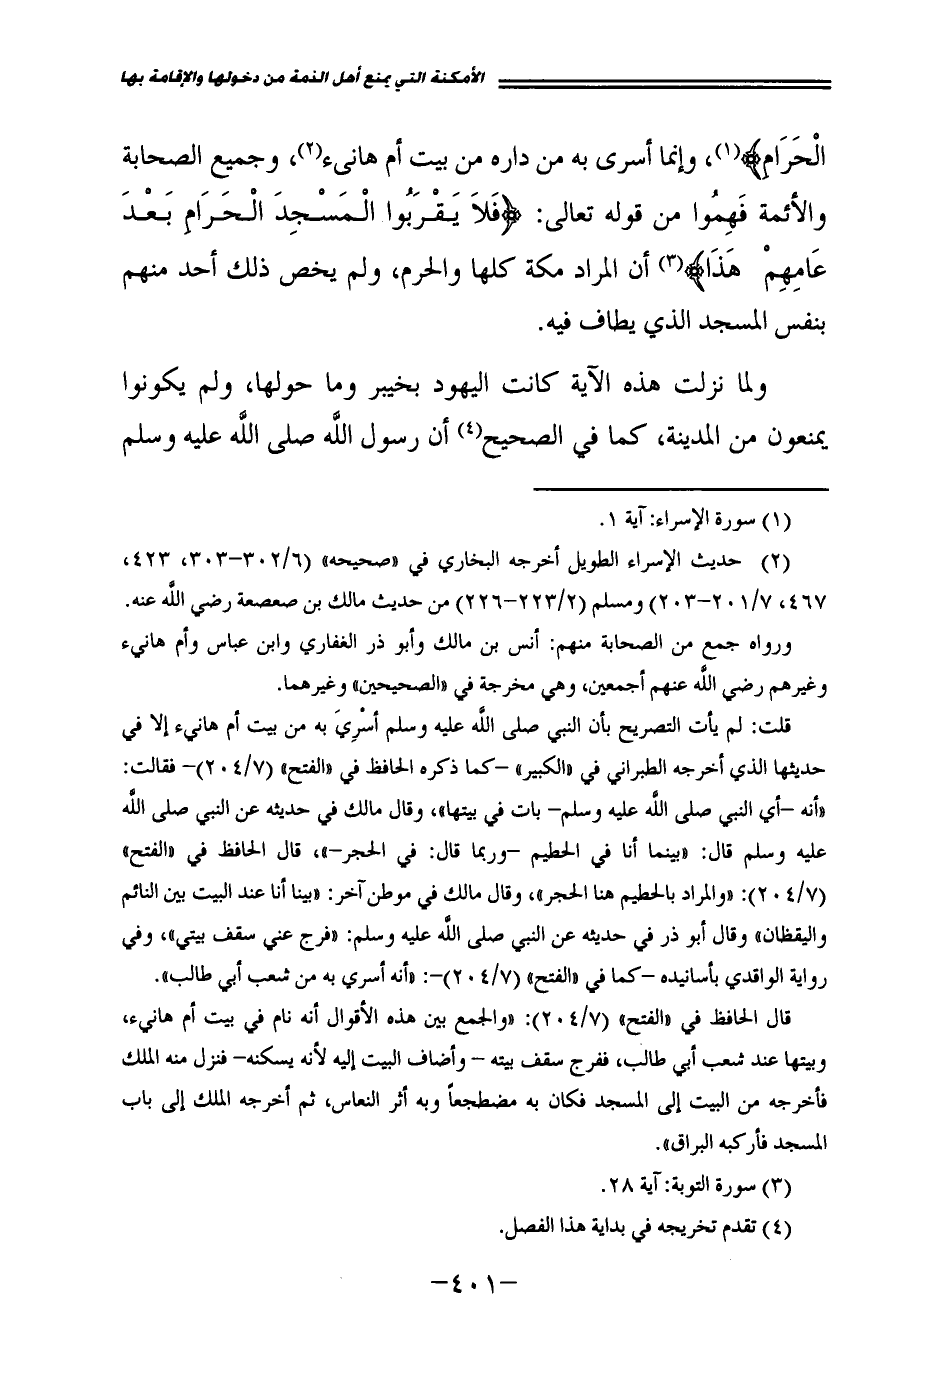 الأمكنة التي يمنع أهل الذمة من دخولها والإقامة بها
الْحَرَامِ﴾(١)، وإنما أسرى به من داره من بيت أم هانىء(٢)، وجميع الصحابة
والأئمة فَهِمُوا من قوله تعالى: ﴿فَلاَ يَـقْـرَبُوا الْـمَسْـجِدَ الْـحَـرَامِ بَـعْـدَ
عَامِهِمْ هَذَا﴾(٣) أن المراد مكة كلها والحرم، ولم يخص ذلك أحد منهم
بنفس المسجد الذي يطاف فيه.
ولما نزلت هذه الآية كانت اليهود بخيبر وما حولها، ولم يكونوا
يمنعون من المدينة، كما في الصحيح(٤) أن رسول اللَّه صلى اللَّه عليه وسلم
(١) سورة الإسراء: آية ١.
(٢) حديث الإسراء الطويل أخرجه البخاري في «صحيحه» (٣٠٢/٦-٣٠٣، ٤٢٣،
٤٦٧، ٢٠١/٧-٢٠٣) ومسلم (٢٢٣/٢-٢٢٦) من حديث مالك بن صعصعة رضي اللَّه عنه.
ورواه جمع من الصحابة منهم: أنس بن مالك وأبو ذر الغفاري وابن عباس وأم هانيء
وغيرهم رضي اللَّه عنهم أجمعين، وهي مخرجة في «الصحيحين» وغيرهما.
قلت: لم يأت التصريح بأن النبي صلى اللَّه عليه وسلم أسْرِيَ به من بيت أم هانيء إلا في
حديثها الذي أخرجه الطبراني في «الكبير» -كما ذكره الحافظ في «الفتح» (٢٠٤/٧)- فقالت:
«أنه -أي النبي صلى اللَّه عليه وسلم- بات في بيتها»، وقال مالك في حديثه عن النبي صلى اللَّه
عليه وسلم قال: «بينما أنا في الحطيم -وربما قال: في الحجر-»، قال الحافظ في «الفتح»
(٢٠٤/٧): «والمراد بالحطيم هنا الحجر»، وقال مالك في موطن آخر: «بينا أنا عند البيت بين النائم
واليقظان» وقال أبو ذر في حديثه عن النبي صلى اللَّه عليه وسلم: «فرج عني سقف بيتي»، وفي
رواية الواقدي بأسانيده -كما في «الفتح» (٢٠٤/٧)-: «أنه أسري به من شعب أبي طالب».
قال الحافظ في «الفتح» (٢٠٤/٧): «والجمع بين هذه الأقوال أنه نام في بيت أم هانيء،
وبيتها عند شعب أبي طالب، ففرج سقف بيته - وأضاف البيت إليه لأنه يسكنه- فنزل منه الملك
فأخرجه من البيت إلى المسجد فكان به مضطجعاً وبه أثر النعاس، ثم أخرجه الملك إلى باب
المسجد فأركبه البراق».
(٣) سورة التوبة: آية ٢٨.
(٤) تقدم تخريجه في بداية هذا الفصل.
-٤٠١-